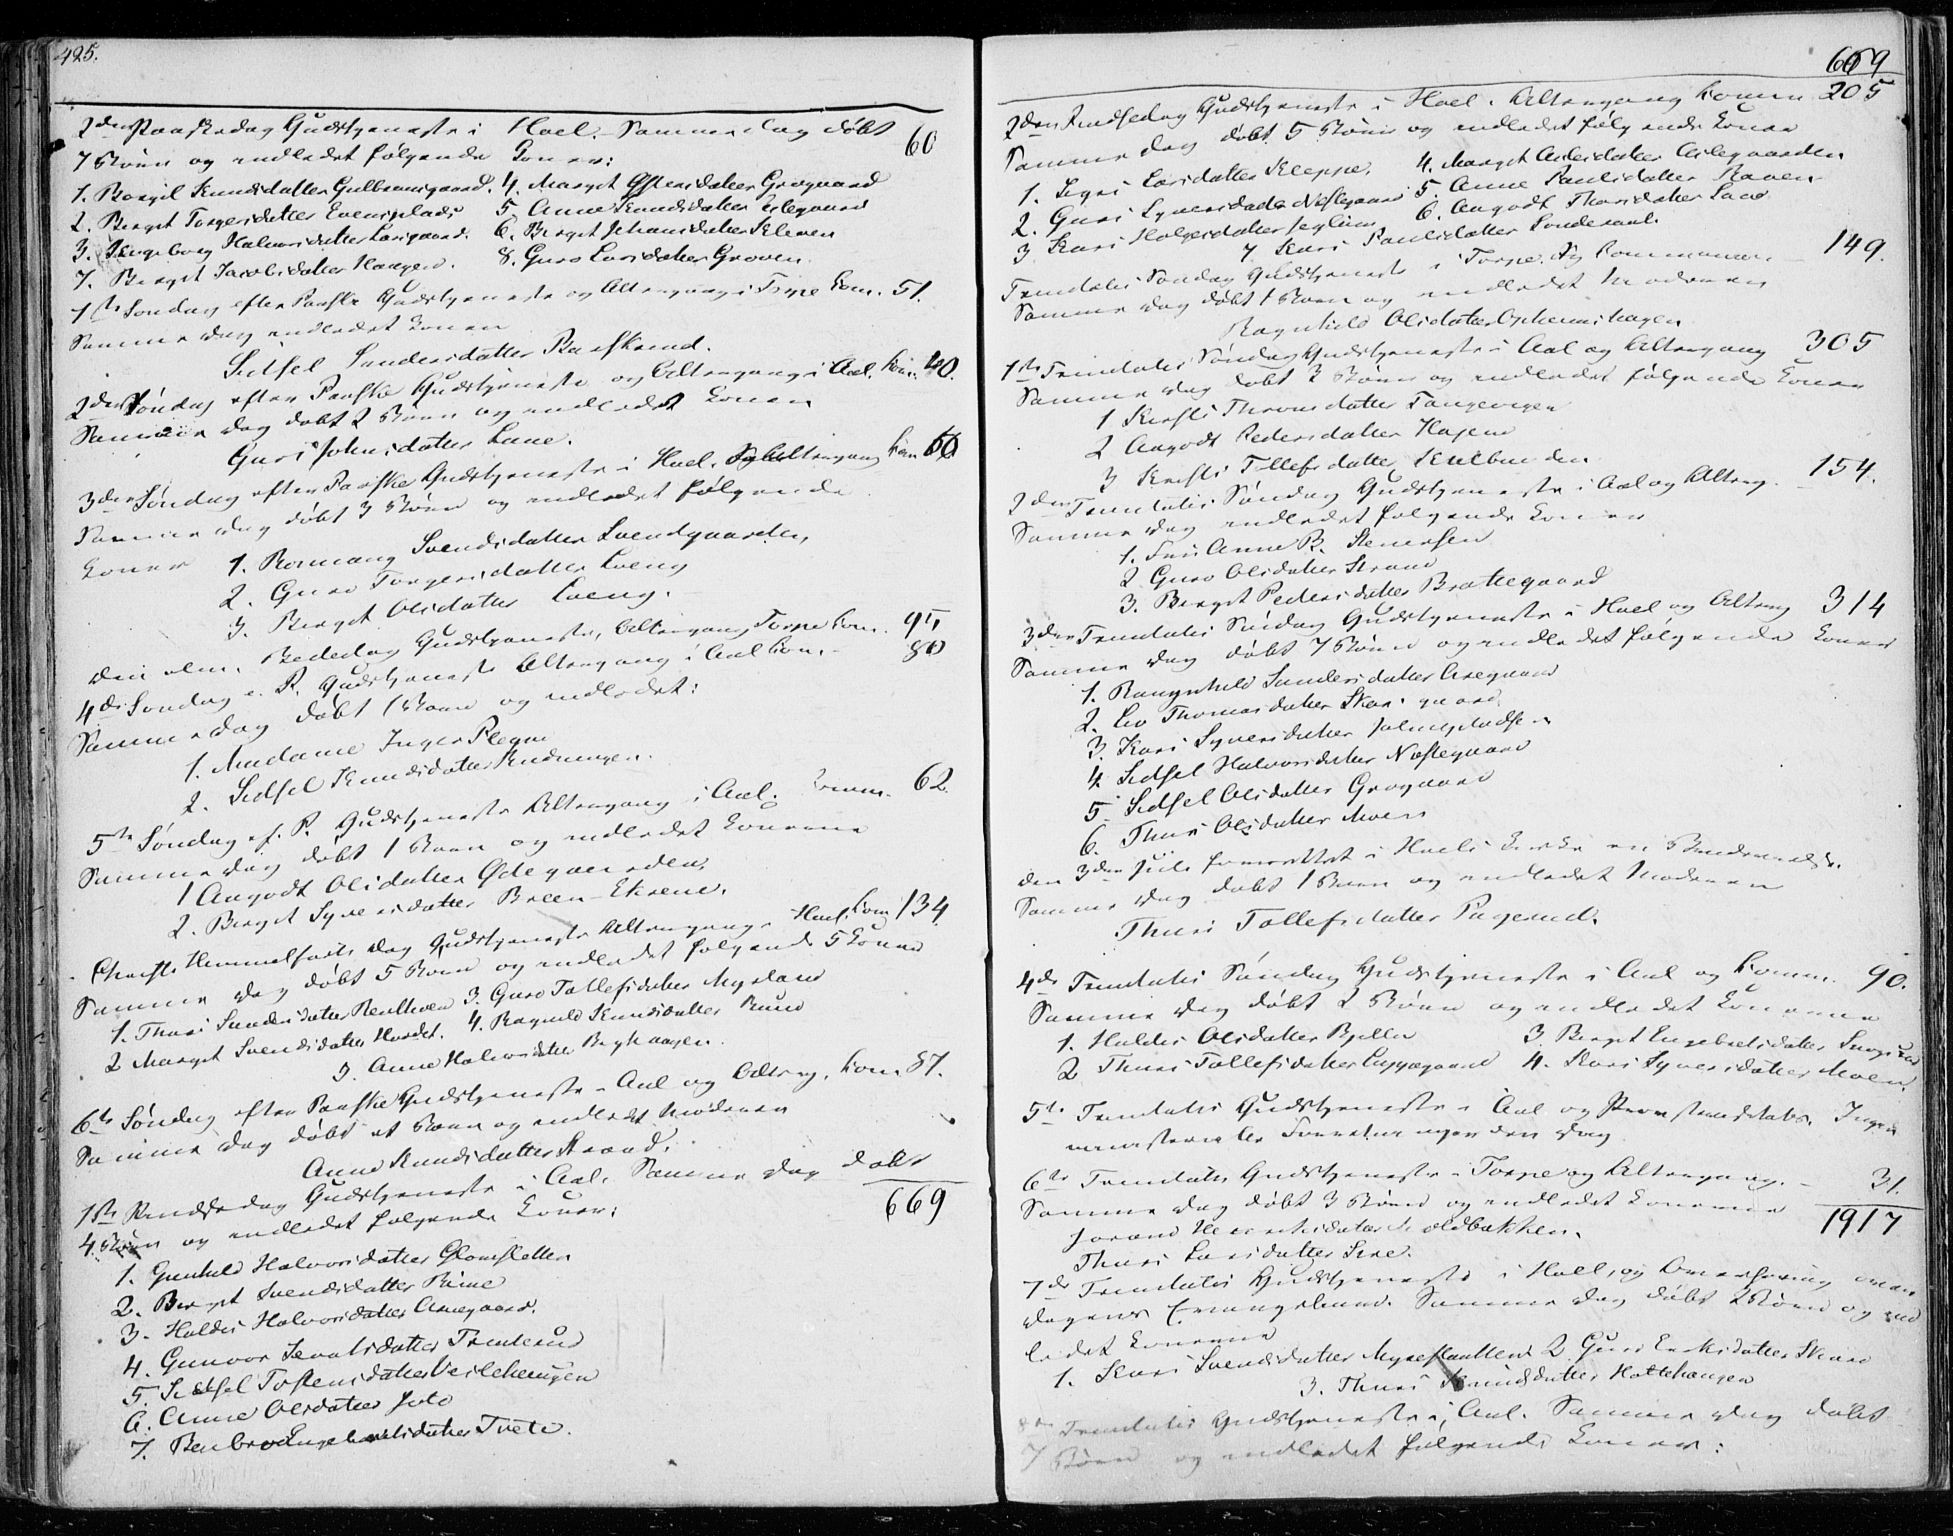 425.
2den Paaskedag Gudstjeneste i Hoel. Samme dag døbt 60
7 Børn og indledet følgende Koner:
1. Bergit Knudsdatter Gulbrandsgaard. 4. Marget Ostensdatter Grøgaard
2. Berget Torgersdatter Evensplads 5. Anne Knudsdatter
3. Ingeborg Halvorsdatter Larsgaard. 6. Berget Johansdatter Kleven
7. Berget Jacobsdatter Haugen. 8. Guro Larsdatter Groven
1ste Søndag efter Paaske Gudstjeneste og Altergang i Torpe Kom. 51.
Samme dag indledet Konen
Sidsel Sandersdatter
2den Søndag efter Paaske Gudstjeneste og Altergang i Aal. Kom. 40.
Samme dag døbt 2 Børn og indledet Konen
Guri Johnsdatter Lane.
3den Søndag efter Paaske Gudstjeneste i Hoel. Altergang Kom
Samme dag døbt 3 Børn og indledet følgende
Koner 1. Rannang Svendsdatter Svendgaarden,
2. Guro Torgersdatter Loeng
3. Berget Olsdatter Loeng.
den alm. Bededag Gudstjeneste, Altergang Torpe Kom. 95
4de Søndag e. P. Gudstjeneste Altergang i Aal Kom. 80
Samme dag døbt 1 Barn og indledet:
1. Madame Inger
2. Sidsel Knudsdatter
5te Søndag ef. P. Gudstjeneste Altergang i Aal. Comm. 62.
Samme dag døbt 1 Barn og indledet Konerne
1 Aagodt Olsdatter Ødegaarden,
2. Berget Syversdatter Breen-Ekrene.
Christi Himmelfarts dag Gudstjeneste Altergang i Hoel. Kom 134
Samme dag døbt 5 Børn og indledet følgende 5 Koner
1. Thuri Sandersdatter 3. Guro Tollefsdatter Myrland
2 Marget Svendsdatter 4. Ragnild Knudsdatter Ruud
5. Anne Halvorsdatter Berghaagen.
6te Søndag efter Paaske Gudstjeneste i Aal og Altrg. Kom. 87.
Samme dag døbt et Barn og indledet Moderen
Anne Knudsdatter Strand.
1ste Pindsedag Gudstjeneste i Aal. Samme dag døbt
4. Børn og indledet følgende Koner: 669
1. Gunhild Halvorsdatter Glomsletten
2. Berget Svendsdatter Rime
3. Haldis Halvorsdatter Arnegaard.
4. Gunvor
5. Sidsel Tostensdatter Veslehaugen
6. Anne Olsdatter
7. Engebretsdatter Tveto.
669
2den Pindsedag Gudstjeneste i Hoel. Altergang Comm 205
Samme dag døbt 5 Børn og indledet følgende Koner
1. Sigri Larsdatter Kleppe. 4. Marget Asledatter Aslegaarden
2. Guri Syversdatter Nestegaard 5. Anne Paulsdatter Raaen
3 Kari Holgersdatter 6. Aagodt Thorsdatter
7 Kari Paulsdatter Sonderaal.
Trinitatis Søndag Gudstjeneste i Torpe og Kommunion 149.
Samme dag døbt 1 Barn og indledet Moderen
Ragnhild Olsdatter Opheimshagen
1ste Trinitatis Søndag Gudstjeneste i Aal og Altergang 305
Samme dag døbt 2 Børn og indledet følgende Koner
1 Kirsti Thronsdatter Tangevigen
2 Aagodt Pedersdatter Hagene
3 Kirsti Tollefsdatter
2den Trinitatis Søndag Gudstjeneste i Aal og Altrg. 154.
Samme dag indledet følgende Koner
1. Fru Anne B. Stenersen
2 Guro Olsdatter Strand
3. Berget Pedersdatter Brattegaard
3die Trinitatis Søndag Gudstjeneste i Hoel og Altrg 314
Samme dag døbt 7 Børn og indledet følgende Koner
1. Rangnhild Sandersdatter
2. Liv Thomasdatter Skarsgaard
3. Kari Syversdatter
4 Sidsel Halvorsdatter Nestegaard
5. Sidsel Olsdatter Grøgaard
6. Thuri Olsdatter Moen
den 3die Juli forrettet i Hoels Kirke en
Samme dag døbt 1 Barn og indledet Moderen
Thuri Tollefsdatter
4de Trinitatis Søndag Gudstjeneste i Aal og Komm. 90.
Samme dag døbt 2 Børn og indledet Konerne
1. Haldis Olsdatter Bjella 3. Berget Engebretsdatter
2 Thuri Tollefsdatter 4. Kari Syversdatter Moen.
5te Trinitatis Gudstjeneste i Aal og Ingen
ministerielle Forretninger den dag
6te Trinitatis Gudstjeneste i Torpe og Altergang. 31.
Samme dag døbt 3 Børn og indledet Konerne 1917
Joraan Henriksdatter
Thuri Larsdatter
7de Trinitatis Gudstjeneste i Hoel, og over
dagens Evangelium. Samme dag døbt 2 Børn og ind
ledet Konerne
1. Kari Svendsdatter 2 Guri Eriksdatter Skare
3. Thuri Knudsdatter Hottehaugen
8de Trinitatis Gudstjeneste i Aal. Samme dag døbt
7 Børn og indledet følgende Koner: